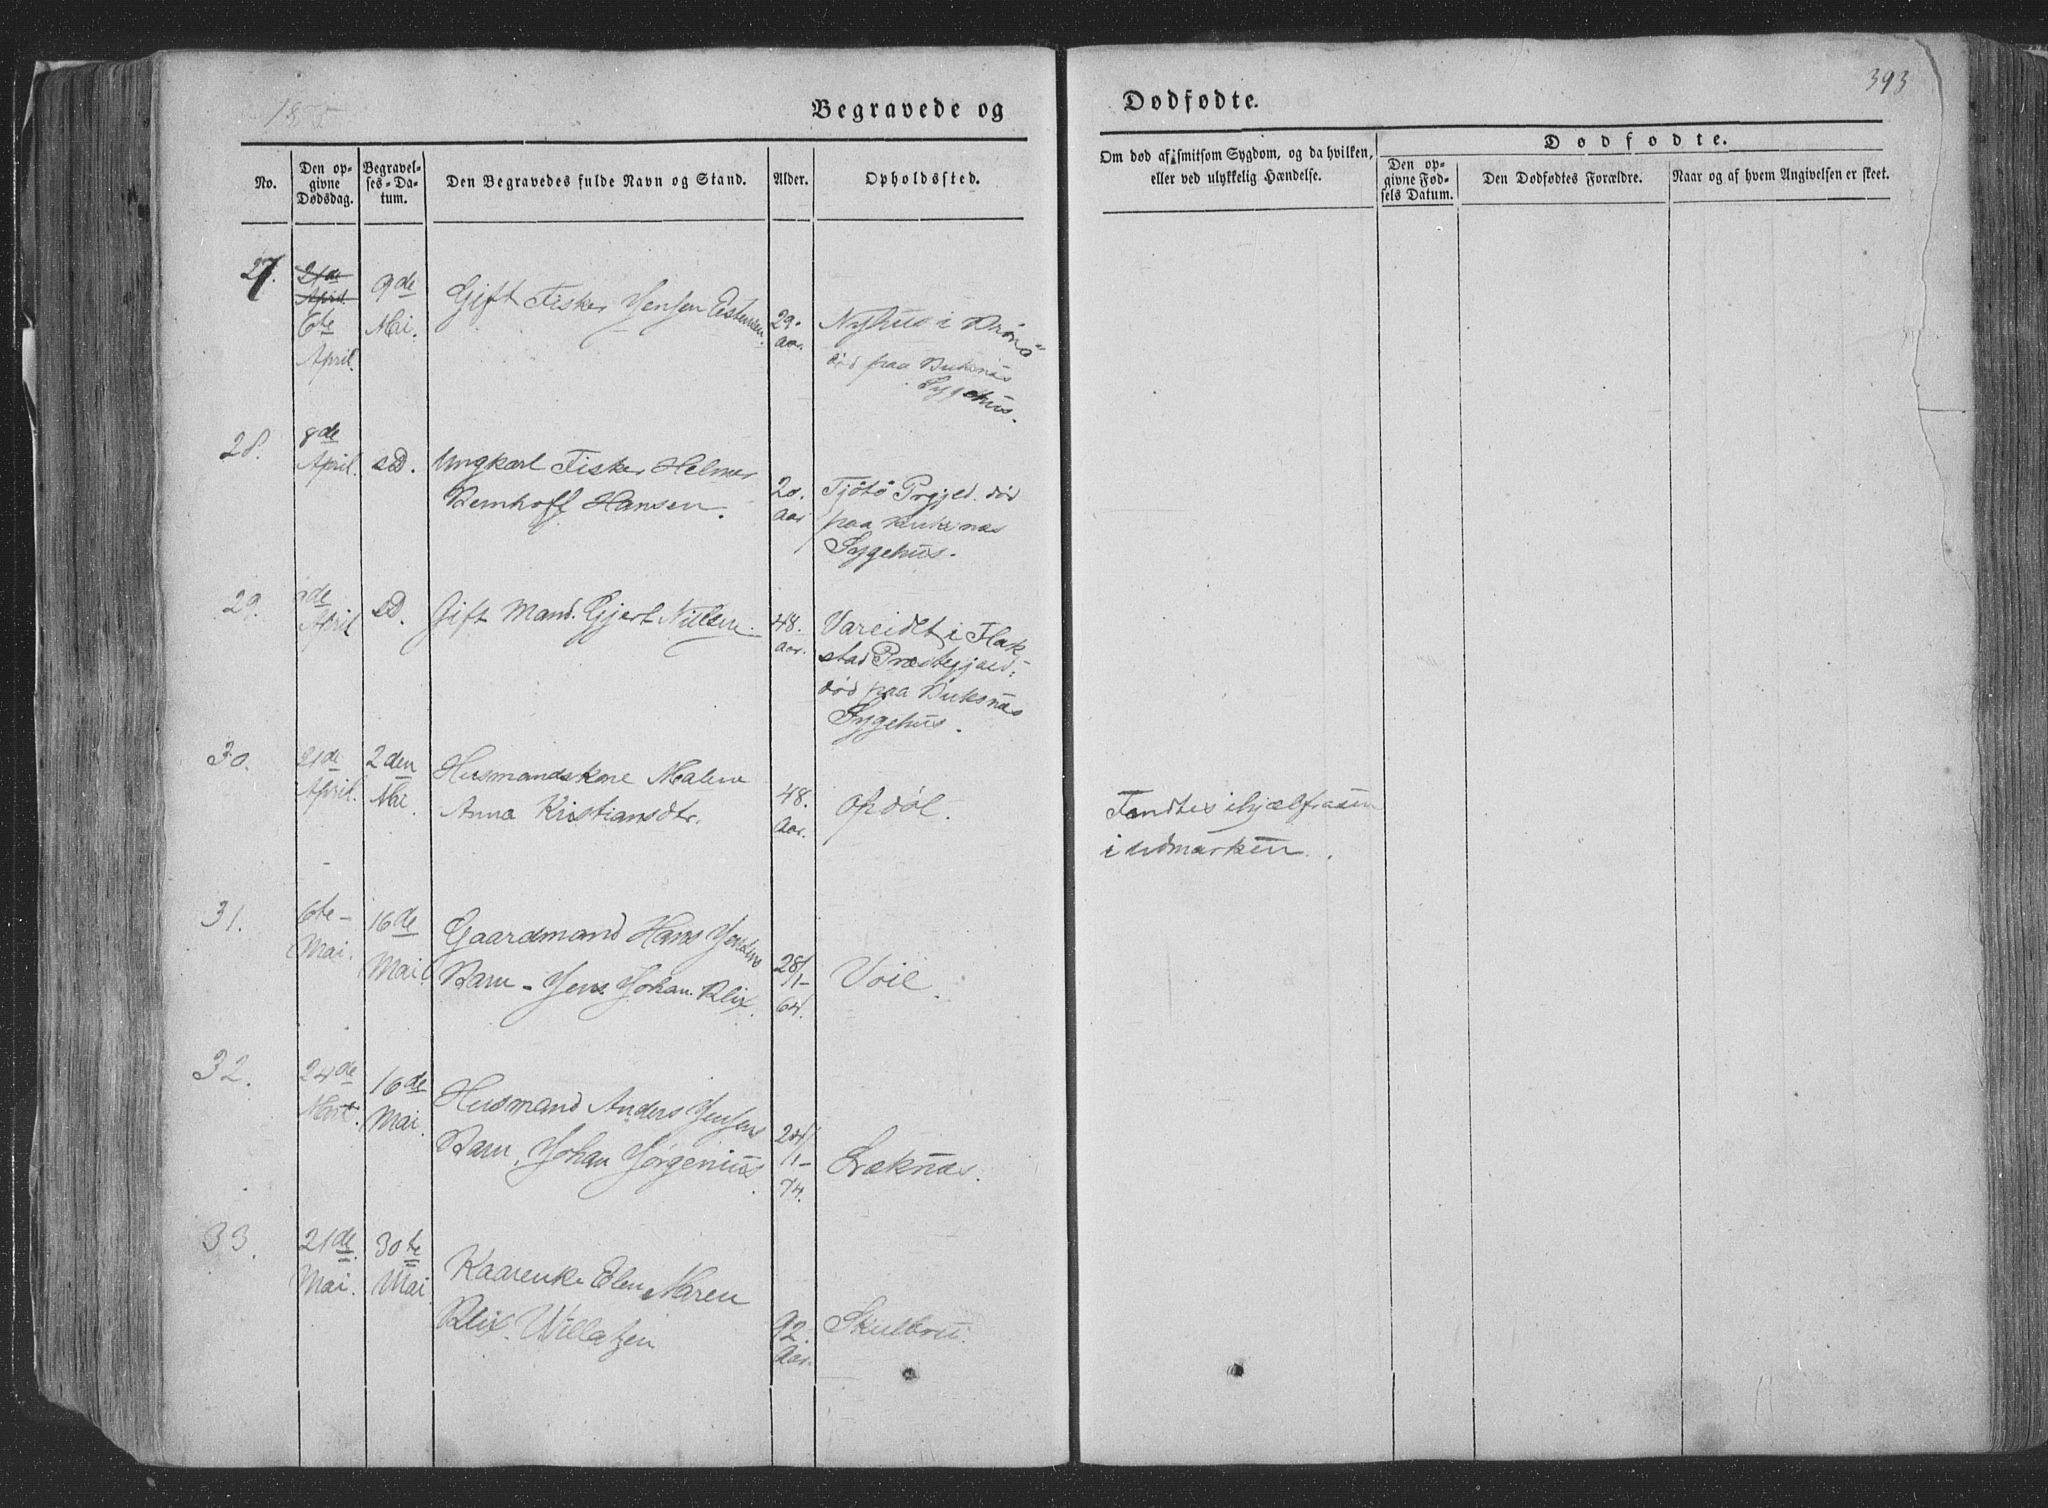 Begravede og
Dødfødte.
393
No.
Den op-
givne
Dødsdag.
Begravel-
ses-Da-
tum.
Den Begravedes fulde Navn og Stand.
Alder.
Opholdssted.
Om død af smitsom Sygdom, og da hvilken,
eller ved ulykkelig Hændelse.
Dødfødte.
Den op-
givne Fød-
sels Datum.
Den Dødfødtes Forældre.
Naar og af hvem Angivelsen er skeet.
27.
21de
April.
6te
April.
9de
Mai.
Gift Fisker Jensen
29.
Aar.
Nyhus i
død paa Buksnæs
Sygehus.
28.
8de
April.
sD.
Ungkarl Fisker Helmer
Bernhoft Hansen.
20.
Aar
Tjøtø Prgjed. død
paa Buksnæs
Sygehus.
29.
April
sD.
Gift Mand. Gjert Nilsen.
48.
Aar.
Vareidet i Flak
stad Præstegjæld;
død paa Buksnæs
Sygehus.
30.
21de
April.
2den
Mai
Husmandskone Malene
Anna Kristiansdtr.
48.
Aar.
Opdøl.
Fandtes ihjælfrosen
i udmarken.
31.
6te
Mai.
16de
Mai
Gaardmand Hans Jensens
Barn - Jens Johan Blix.
28/
1-
64.
Voie.
32.
24de
Mart.
16de
Mai.
Husmand Anders Jensens
Barn, Johan Jørgenius.
24/
1-
74.
Læknæs.
33.
21de
Mai.
30te
Mai
Kaarenke Elen Maren
Blix Willatzen
92.
Aar.
Skulbru.